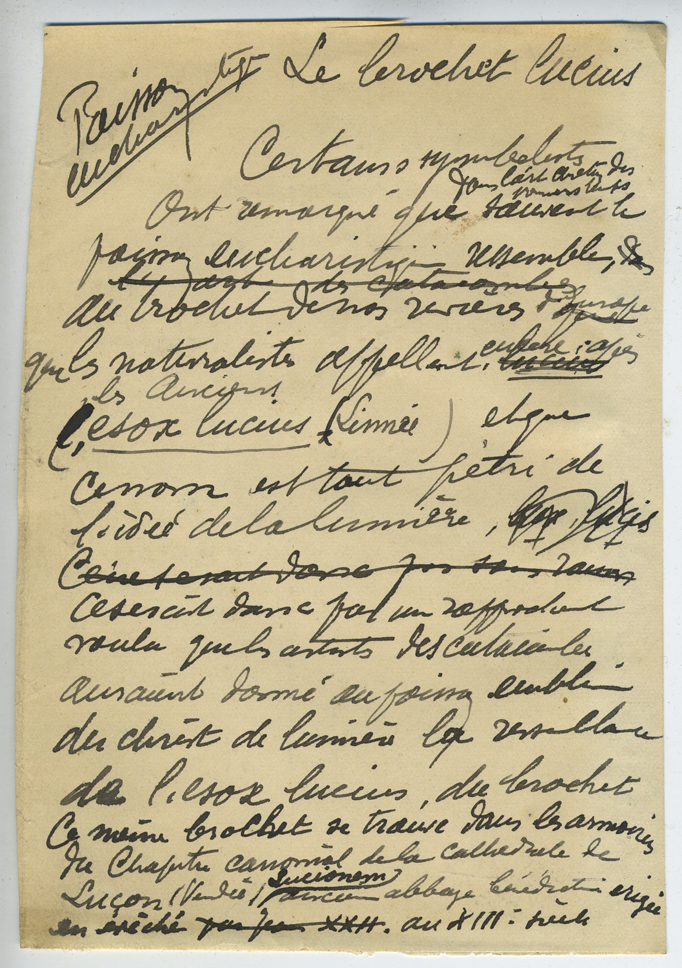 Poisson
eucharistique
Le brochet lucius
Certains symbolistes
dans l'art chrétien des
premiers temps
Ont remarqué que souvent le
poisson eucharistique ressemble,
l'art des catacombes
au brochet de nos rivières d'Europe
que les naturalistes appellent, après
les Anciens
l'esox lucius (Linnée) et que
ce nom est tout pétri de
l'idée de la lumière, lux, lucis
Ce ne serait donc pas sans
ce serait donc par un rapprochement
voulu que les artistes des catacombes
auraient donné au poisson emblème
du christ de lumière la ressemblance
de l'esox lucius, du brochet
Ce même brochet se trouve dans les armoiries
du Chapitre canonial de la cathédrale de
Lucionem
Luçon (Vendée) ancienne abbaye bénédictine érigée
en évêché par XXII. au XIIIe siècle